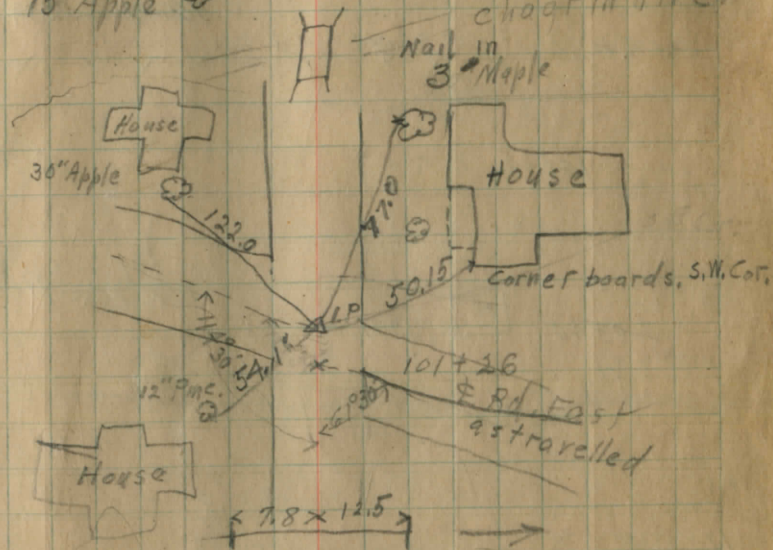 15 Apple
Nail in
3" Maple
House
30" Apple
House
122.0
77.0
50.15
Corner boards, S.W. Cor.
I.P.
54.1
30'
101+26
℄ Rd. East
as travelled
12" Pine.
61°30'
House
7.8 x 12.5